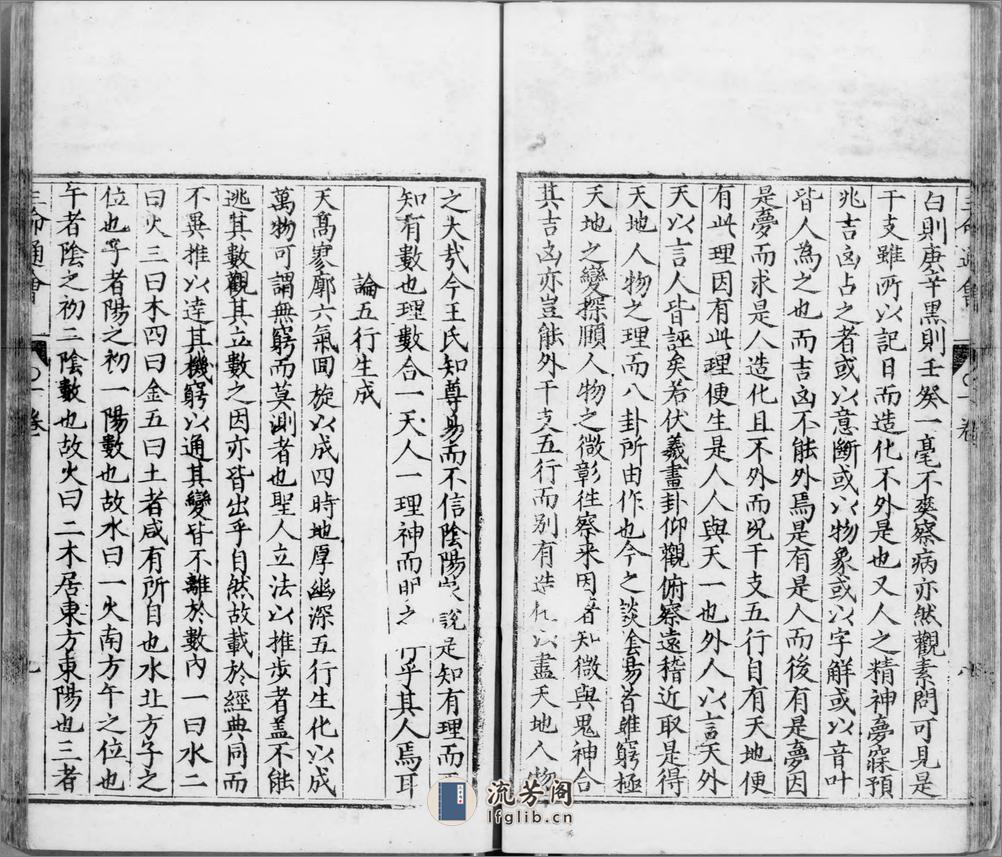 白則庚辛黑則壬癸一毫不爽察病亦然觀素問可見是
干支雖所以記日而造化不外是也又人之精神夢寐預
兆吉凶占之者或以意斷或以物象或以字解或以音叶
皆人為之也而吉凶不能外焉是有是人而後有是夢因
是夢而求是人造化且不外而况干支五行自有天地便
有此理因有此理便生是人人與天一也外人以言天外
天以言人皆誣矣若伏羲畫卦仰觀俯察遠稽近取是得
天地人物之理而八卦所由作也今之談金易者雖窮極
天地之變探賾人物之微彰徃察来因著知微與鬼神合
其吉凶亦豈能外干支五行而別有造化以盡天地人物
之大㢤今王氏知尊易而不信陰陽之說是知有理而
知有數也理數合一天人一理神而明之存乎其人焉耳
論五行生成
天高寥廓六氣囬旋以成四時地厚幽深五行生化以成
萬物可謂無窮而莫測者也聖人立法以推步者盖不能
逃其數觀其立數之因亦皆出乎自然故載於經典同而
不異推以達其機窮以通其變皆不離於數內一曰水二
曰火三曰木四曰金五曰土者咸有所自也水北方子之
位也子者陽之初一陽數也故水曰一火南方午之位也
午者陰之初二陰數也故火曰二木居東方東陽也三者
三命通會
卷一
九
流芳阁
lfglib.cn